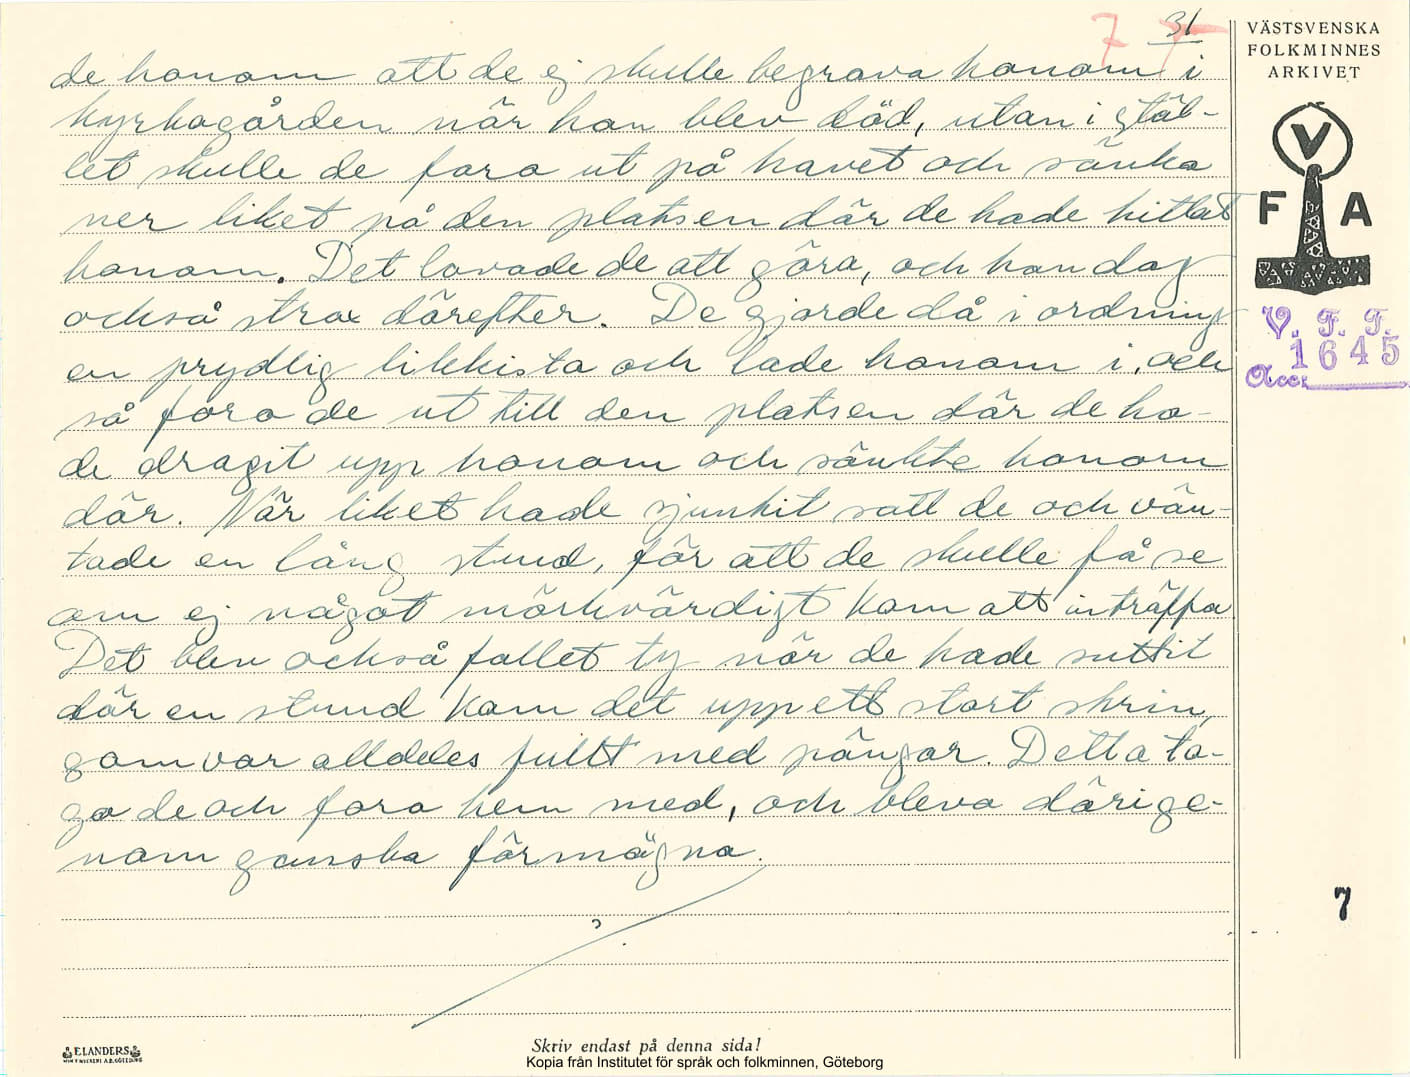 7 31
VÄSTSVENSKA
FOLKMINNES
ARKIVET
V
F A
V. F. F.
1645
Acc:
de honom att de ej skulle begrava honom i
kyrkogården när han blev död, utan i stäl-
let skulle de fara ut på havet och sänka
ner liket på den platsen där de hade hittat
honom. Det lovade de att göra, och han dog
också strax därefter. De gjorde då i ordning
en prydlig likkista och lade honom i, och
så foro de ut till den platsen där de ha-
de dragit upp honom och sänkte honom
där. När liket hade sjunkit satt de och vän-
tade en lång stund, för att de skulle få se
om ej något märkvärdigt kom att inträffa
Det blev också fallet ty när de hade suttit
där en stund kom det upp ett stort skrin,
som var alldeles fullt med pängar. Detta to-
go de och foro hem med, och bleva därige-
nom ganska förmögna.
7
ELANDERS
Skriv endast på denna sida!
Kopia från Institutet för språk och folkminnen, Göteborg